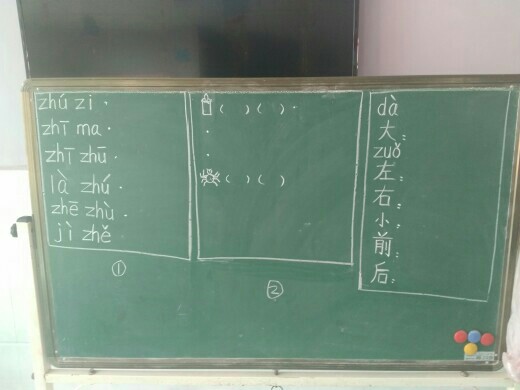 zhú zi ·
zhī ma ·
zhī zhū ·
là zhú ·
zhē zhù ·
jì zhě
①
( ) ( ) ·
·
·
( ) ( )
②
dà
大:
zuǒ
左:
右:
小:
前:
后: